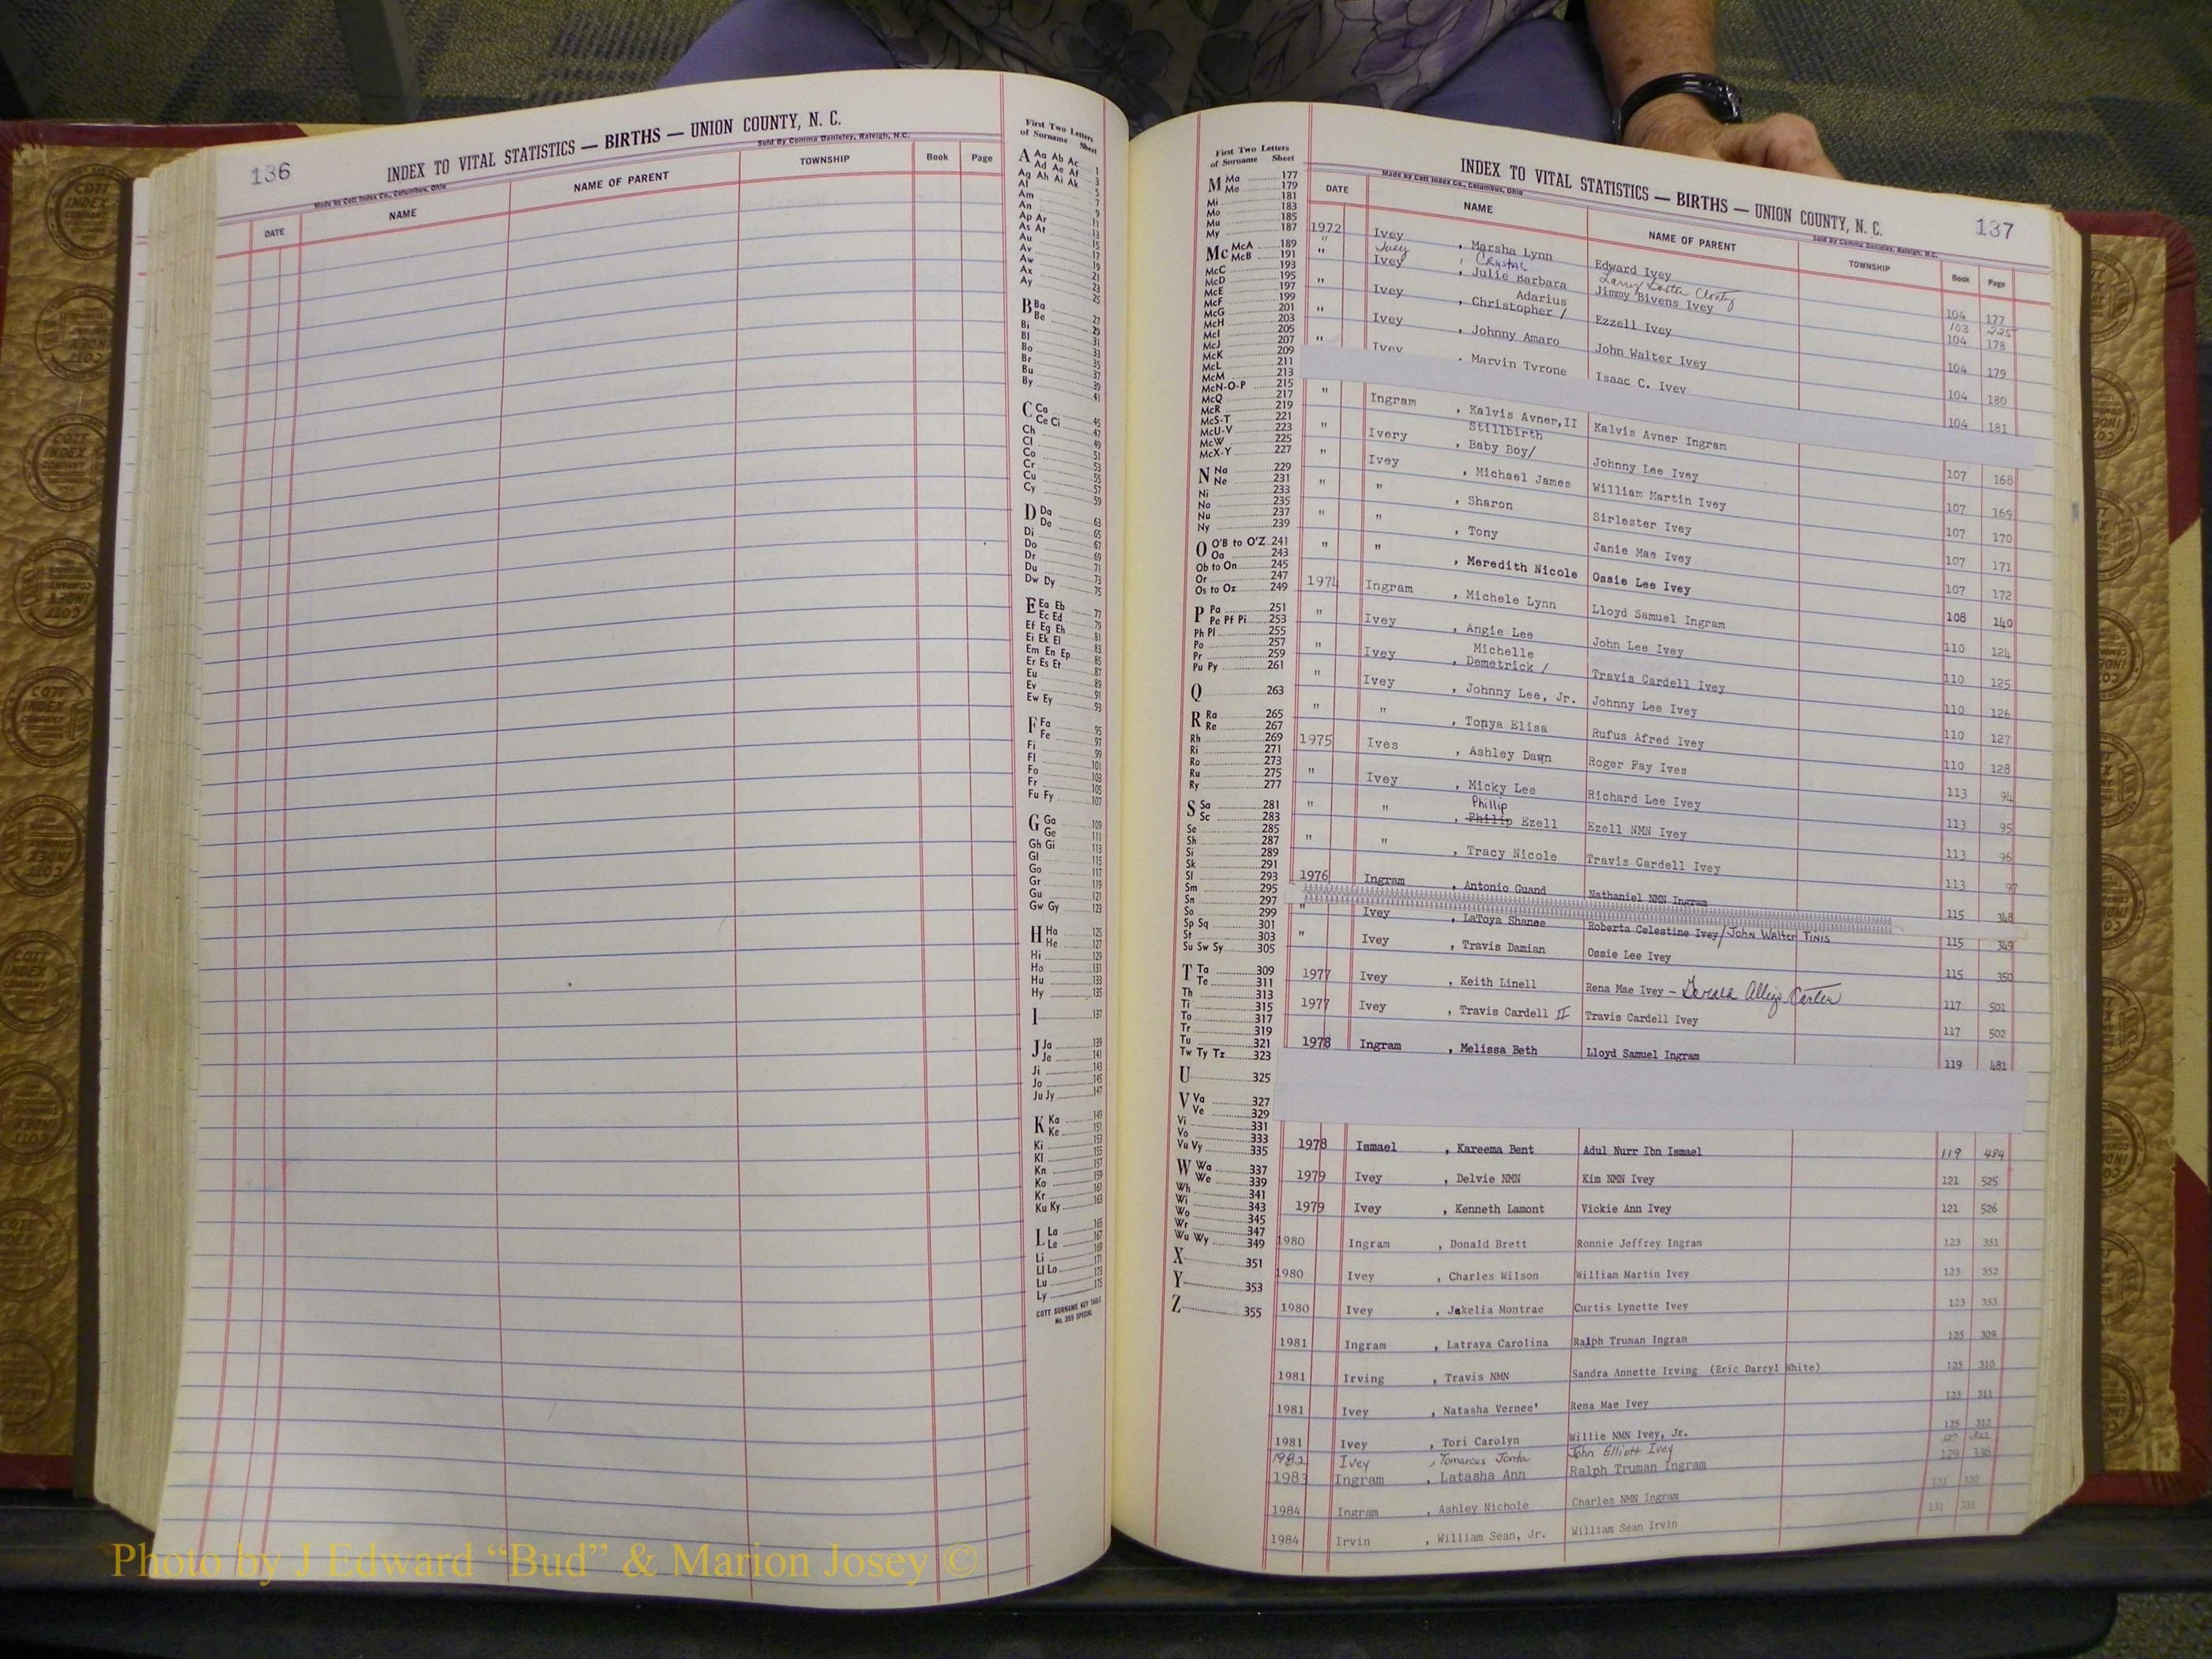 136
INDEX TO VITAL STATISTICS — BIRTHS — UNION COUNTY, N. C.
Made by Cott Index Co., Columbus, Ohio
Sold By Comma Danieley, Raleigh, N.C.
DATE NAME NAME OF PARENT TOWNSHIP Book Page
First Two Letters
of Surname Sheet
A Aa Ab Ac 1
Ad Ae Af 3
Ag Ah Ai Ak 5
Al 7
Am 9
An 11
Ap Ar 13
As At 15
Au 17
Av 19
Aw 21
Ax 23
Ay 25
B Ba 27
Be 29
Bi 31
Bl 33
Bo 35
Br 37
Bu 39
By 41
C Ca 45
Ce Ci 47
Ch 49
Cl 51
Co 53
Cr 55
Cu 57
Cy 59
D Da 63
De 65
Di 67
Do 69
Dr 71
Du 73
Dw Dy 75
E Ea Eb 77
Ec Ed 79
Ef Eg Eh 81
Ei Ek El 83
Em En Ep 85
Er Es Et 87
Eu 89
Ev 91
Ew Ey 93
F Fa 95
Fe 97
Fi 99
Fl 101
Fo 103
Fr 105
Fu Fy 107
G Ga 109
Ge 111
Gh Gi 113
Gl 115
Go 117
Gr 119
Gu 121
Gw Gy 123
H Ha 125
He 127
Hi 129
Ho 131
Hu 133
Hy 135
I 137
J Ja 139
Je 141
Ji 143
Jo 145
Ju Jy 147
K Ka 149
Ke 151
Ki 153
Kl 155
Kn 157
Ko 159
Kr 161
Ku Ky 163
L La 165
Le 167
Li 169
Ll Lo 171
Lu 173
Ly 175
COTT SURNAME KEY TABLE
No. 305 SPECIAL
First Two Letters
of Surname Sheet
M Ma 177
Me 179
Mi 181
Mo 183
Mu 185
My 187
Mc McA 189
McB 191
McC 193
McD 195
McE 197
McF 199
McG 201
McH 203
McI 205
McJ 207
McK 209
McL 211
McM 213
McN-O-P 215
McQ 217
McR 219
McS-T 221
McU-V 223
McW 225
McX-Y 227
N Na 229
Ne 231
Ni 233
No 235
Nu 237
Ny 239
O O'B to O'Z 241
Oa 243
Ob to On 245
Or 247
Os to Oz 249
P Pa 251
Pe Pf Pi 253
Ph Pl 255
Po 257
Pr 259
Pu Py 261
Q 263
R Ra 265
Re 267
Rh 269
Ri 271
Ro 273
Ru 275
Ry 277
S Sa 281
Sc 283
Se 285
Sh 287
Si 289
Sk 291
Sl 293
Sm 295
Sn 297
So 299
Sp Sq 301
St 303
Su Sw Sy 305
T Ta 309
Te 311
Th 313
Ti 315
To 317
Tr 319
Tu 321
Tw Ty Tz 323
U 325
V Va 327
Ve 329
Vi 331
Vo 333
Vu Vy 335
W Wa 337
We 339
Wh 341
Wi 343
Wo 345
Wr 347
Wu Wy 349
X 351
Y 353
Z 355
INDEX TO VITAL STATISTICS — BIRTHS — UNION COUNTY, N. C. 137
Made by Cott Index Co., Columbus, Ohio
Sold By Comma Danieley, Raleigh, N.C.
DATE NAME NAME OF PARENT TOWNSHIP Book Page
1972 Ivey , Marsha Lynn Edward Ivey 104 177
" Ivey , Crystal Larry 103 225
" Ivey , Julie Barbara Jimmy Bivens Ivey 104 178
Adarius
" Ivey , Christopher / Ezzell Ivey 104 179
" Ivey , Johnny Amaro John Walter Ivey 104 180
" Ivey , Marvin Tyrone Isaac C. Ivey 104 181
" Ingram , Kalvis Avner,II Kalvis Avner Ingram 107 168
Stillbirth
" Ivery , Baby Boy/ Johnny Lee Ivey 107 169
" Ivey , Michael James William Martin Ivey 107 170
" " , Sharon Sirlester Ivey 107 171
" " , Tony Janie Mae Ivey 107 172
" " , Meredith Nicole Ossie Lee Ivey 108 140
1974 Ingram , Michele Lynn Lloyd Samuel Ingram 110 124
" Ivey , Angie Lee John Lee Ivey 110 125
Michelle
" Ivey , Demetrick / Travis Cardell Ivey 110 126
" Ivey , Johnny Lee, Jr. Johnny Lee Ivey 110 127
" " , Tonya Elisa Rufus Afred Ivey 110 128
1975 Ives , Ashley Dawn Roger Fay Ives 113 94
" Ivey , Micky Lee Richard Lee Ivey 113 95
Phillip
" " , Philip Ezell Ezell NMN Ivey 113 96
" " , Tracy Nicole Travis Cardell Ivey 113 97
1976 Ingram , Antonio Guand Nathaniel NMN Ingram 115 348
" Ivey , LaToya Shanee Roberta Celestine Ivey/John Walter Tinis 115 349
" Ivey , Travis Damian Ossie Lee Ivey 115 350
1977 Ivey , Keith Linell Rena Mae Ivey - 117 501
1977 Ivey , Travis Cardell II Travis Cardell Ivey 117 502
1978 Ingram , Melissa Beth Lloyd Samuel Ingram 119 481
1978 Ismael , Kareema Bent Adul Nurr Ibn Ismael 119 484
1979 Ivey , Delvie NMN Kim NMN Ivey 121 525
1979 Ivey , Kenneth Lamont Vickie Ann Ivey 121 526
1980 Ingram , Donald Brett Ronnie Jeffrey Ingram 123 351
1980 Ivey , Charles Wilson William Martin Ivey 123 352
1980 Ivey , Jakelia Montrae Curtis Lynette Ivey 123 353
1981 Ingram , Latraya Carolina Ralph Truman Ingram 125 309
1981 Irving , Travis NMN Sandra Annette Irving (Eric Darryl White) 125 310
1981 Ivey , Natasha Vernee' Rena Mae Ivey 125 311
1981 Ivey , Tori Carolyn Willie NMN Ivey, Jr. 125 312
1982 Ivey , Tomarcus Jonta John Elliott Ivey
1983 Ingram , Latasha Ann Ralph Truman Ingram 129 336
1984 Ingram , Ashley Nichole Charles NMN Ingram 131 330
1984 Irvin , William Sean, Jr. William Sean Irvin 131 331
Photo by J Edward “Bud” & Marion Josey ©